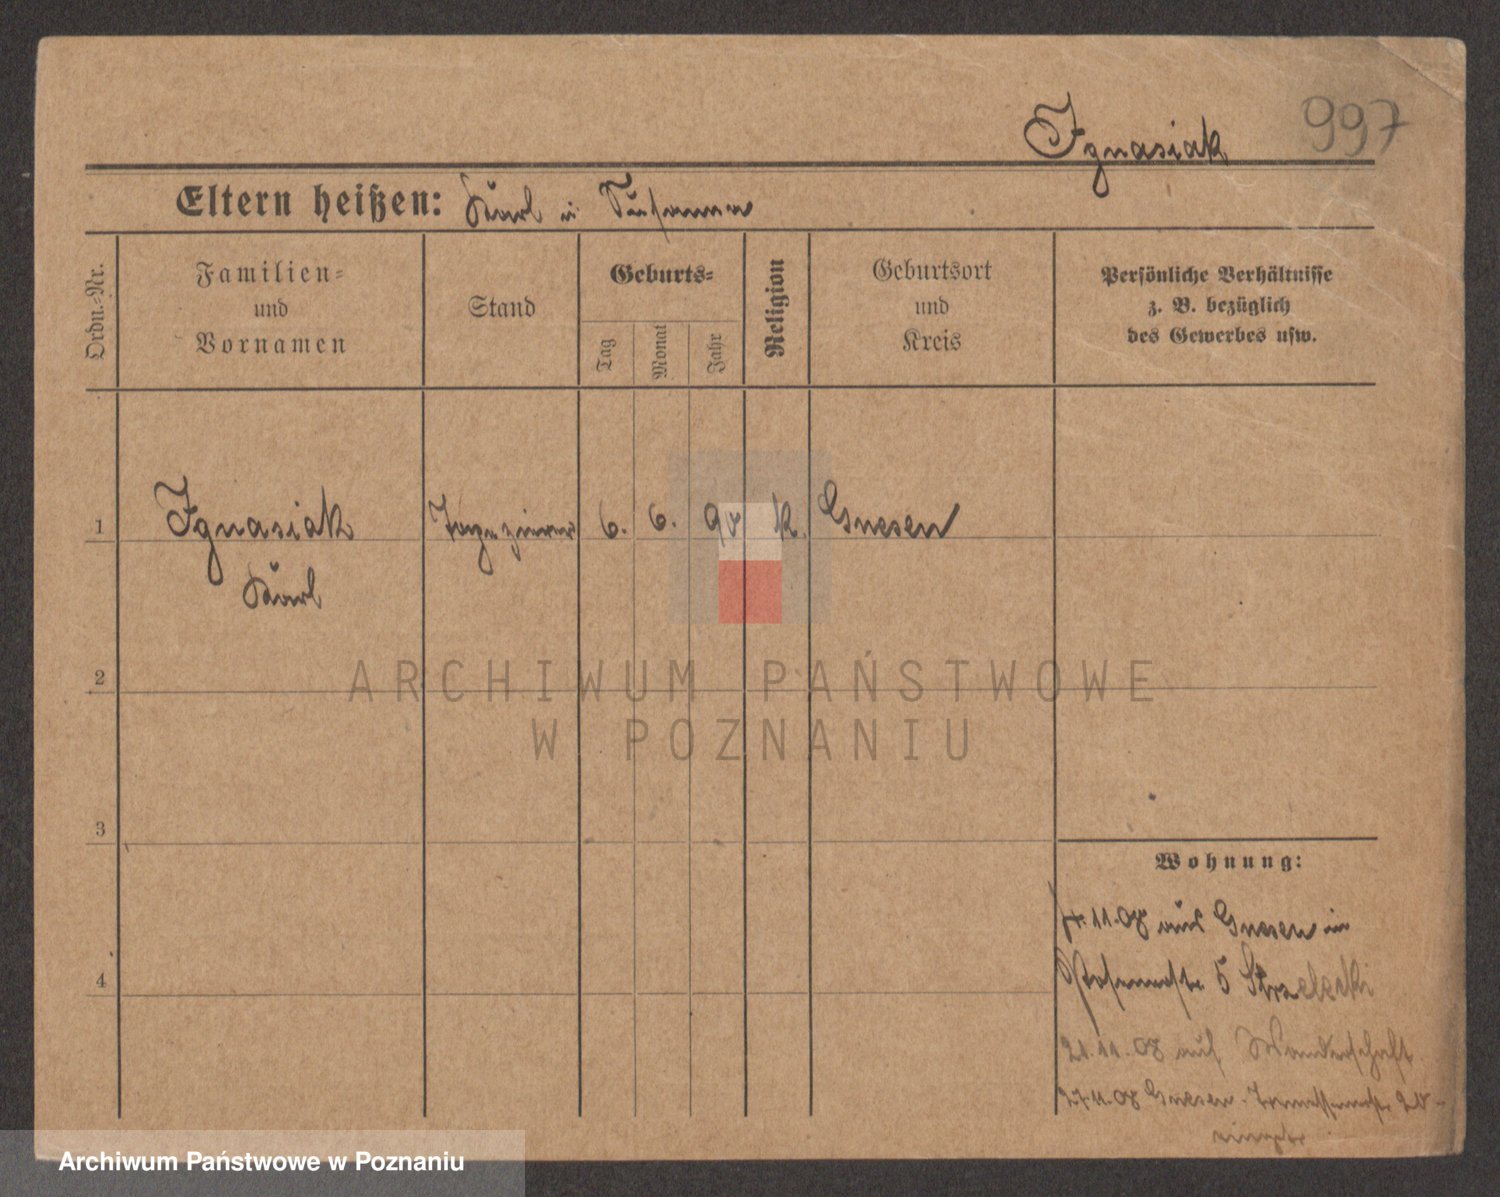 Ignasiak 997
Eltern heißen: Karl u Susanna
Ordn.-Nr.
Familien-
und
Vornamen
Stand
Geburts-
Tag
Monat
Jahr
Religion
Geburtsort
und
Kreis
Persönliche Verhältnisse
z. B. bezüglich
des Gewerbes usw.
1 Ignasiak 6. 6. 90 k. Gnesen
Karl
2
3
4
Wohnung:
4.11.08 aus Gnesen in
Posenerstr. 5 Strzelecki
21.11.08 auf Wanderschaft
27.11.08 Gnesen
ARCHIWUM PAŃSTWOWE
W POZNANIU
Archiwum Państwowe w Poznaniu